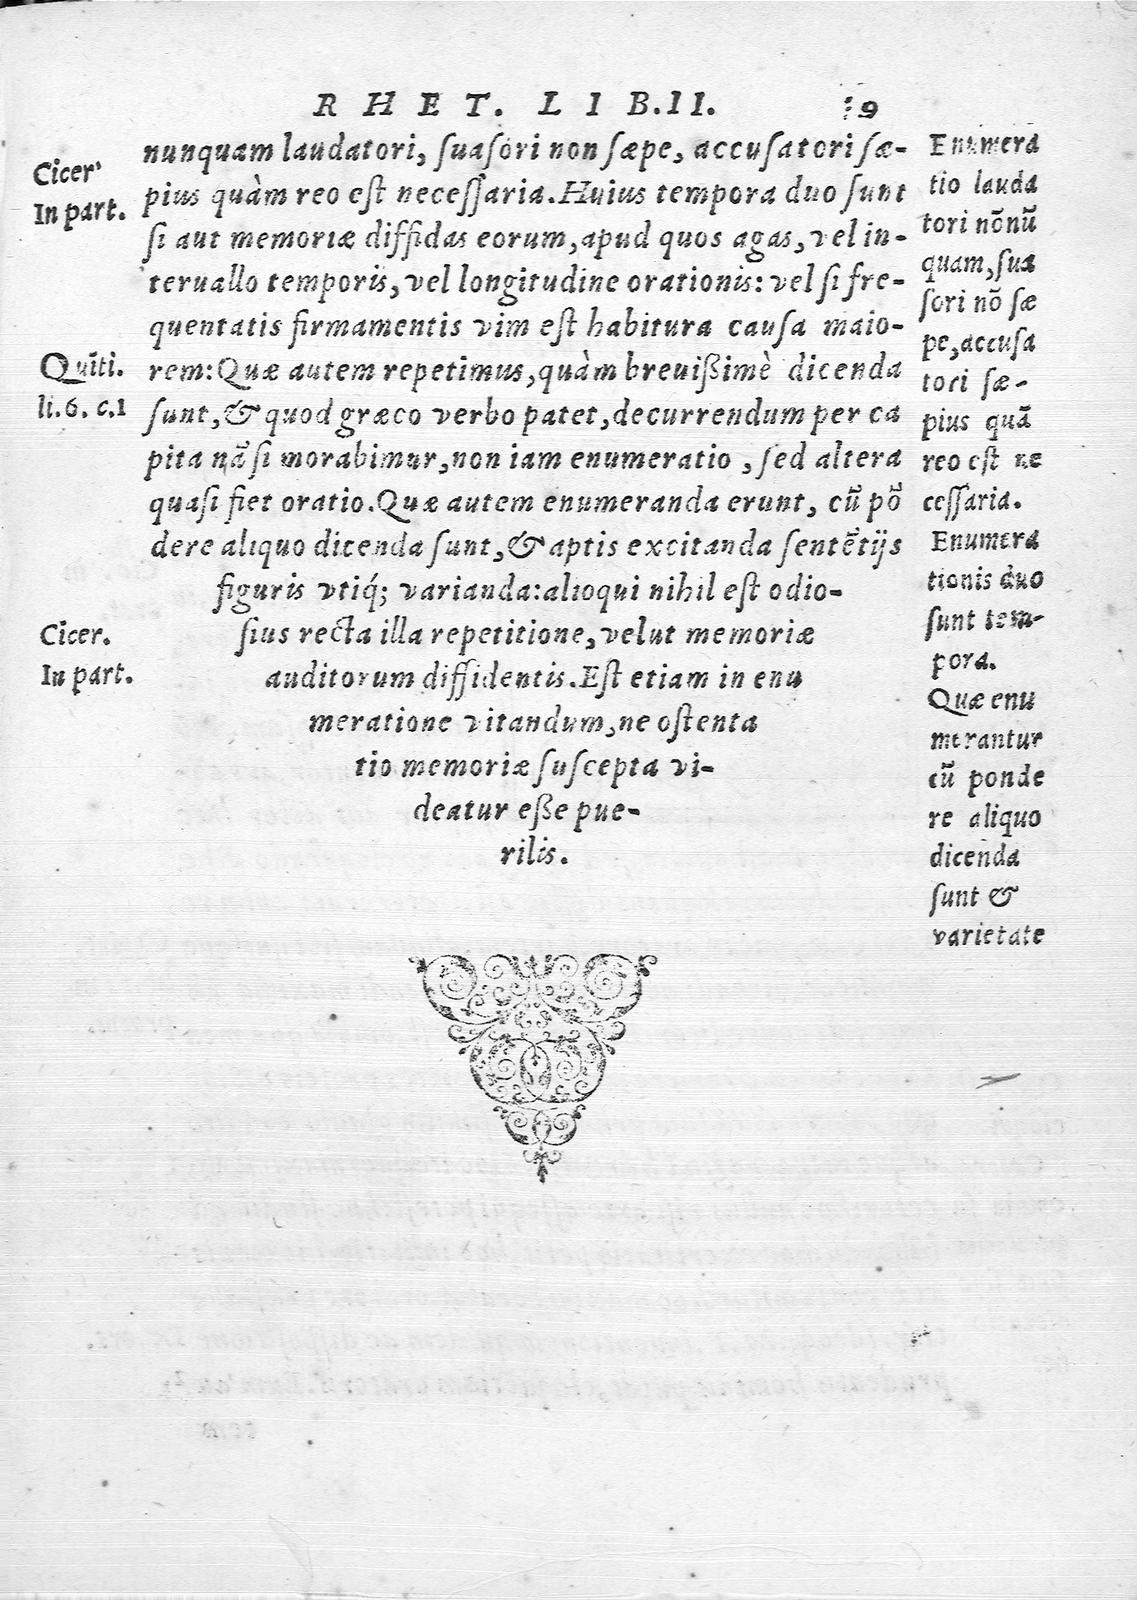 RHET. LIB. II.
nunquam laudatori, ſuaſori non ſæpe, accuſatori ſæ-
pius quàm reo eſt neceſſaria. Huius tempora duo ſunt
ſi aut memoriæ diffidas eorum, apud quos agas, vel in-
teruallo temporis, vel longitudine orationis: vel ſi fre-
quentatis firmamentis vim eſt habitura cauſa maio-
rem: Quæ autem repetimus, quàm breuißimè dicenda
ſunt, & quod græco verbo patet, decurrendum per ca
pita nã ſi morabimur, non iam enumeratio, ſed altera
quaſi fiet oratio. Quæ autem enumeranda erunt, cũ põ
dere aliquo dicenda ſunt, & aptis excitanda ſentẽtijs
figuris vtiq́; varianda: alioqui nihil eſt odio-
ſius recta illa repetitione, velut memoriæ
auditorum diffidentis. Eſt etiam in enu
meratione vitandum, ne oſtenta
tio memoriæ ſuſcepta vi-
deatur eße pue-
rilis.
Cicer'
In part.
Quĩti.
li. 6. c.1
Cicer.
In part.
Enumera
tio lauda
tori nõnũ
quam, ſua
ſori nõ ſæ
pe, accuſa
tori ſæ-
pius quã
reo eſt ne
ceſſaria.
Enumera
tionis duo
ſunt tem-
pora.
Quæ enu
merantur
cũ ponde
re aliquo
dicenda
ſunt &
varietate